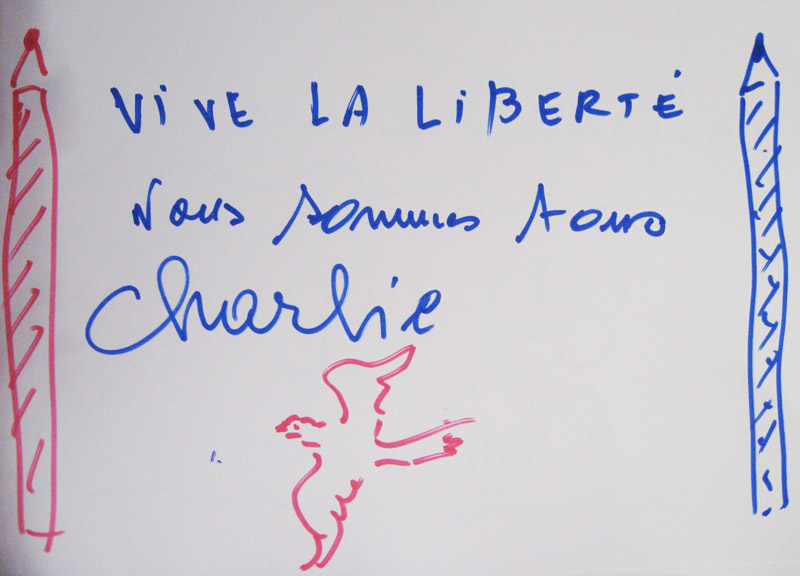 VIVE LA LIBERTÉ
Nous sommes tous
Charlie